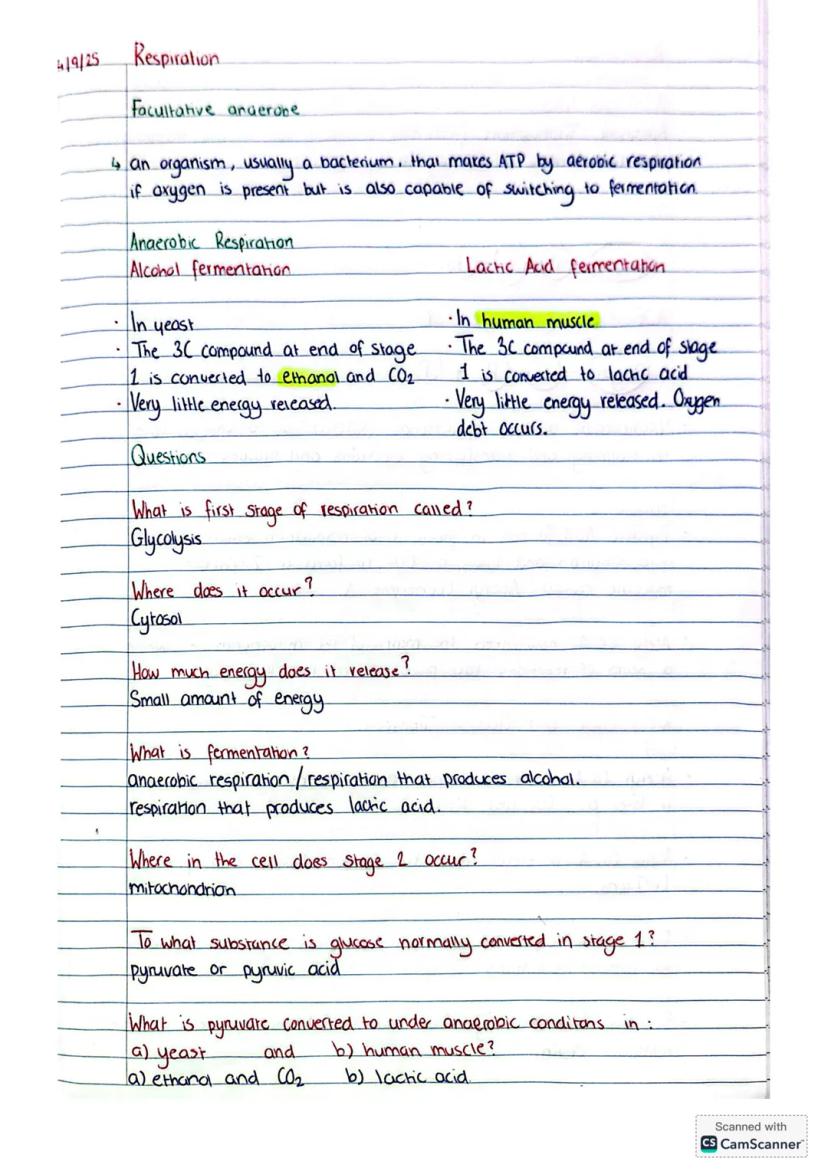 4/9/25 Respiration
Facultative anaerobe
↳ an organism, usually a bacterium, that makes ATP by aerobic respiration
if oxygen is present but is also capable of switching to fermentation
Anaerobic Respiration
Alcohol fermentation
· In yeast
· The 3C compound at end of stage
1 is converted to ethanol and CO2
· Very little energy released.
Lactic Acid fermentation
· In human muscle
· The 3C compound at end of stage
1 is converted to lactic acid
· Very little energy released. Oxygen
debt occurs.
Questions
What is first stage of respiration called?
Glycolysis
Where does it occur?
Cytosol
How much energy does it release?
Small amount of energy
What is fermentation?
anaerobic respiration / respiration that produces alcohol.
respiration that produces lactic acid.
Where in the cell does stage 2 occur?
mitochondrion
To what substance is glucose normally converted in stage 1?
pyruvate or pyruvic acid
What is pyruvate converted to under anaerobic conditons in :
a) yeast and b) human muscle?
a) ethanol and CO2 b) lactic acid.
Scanned with
CS CamScanner